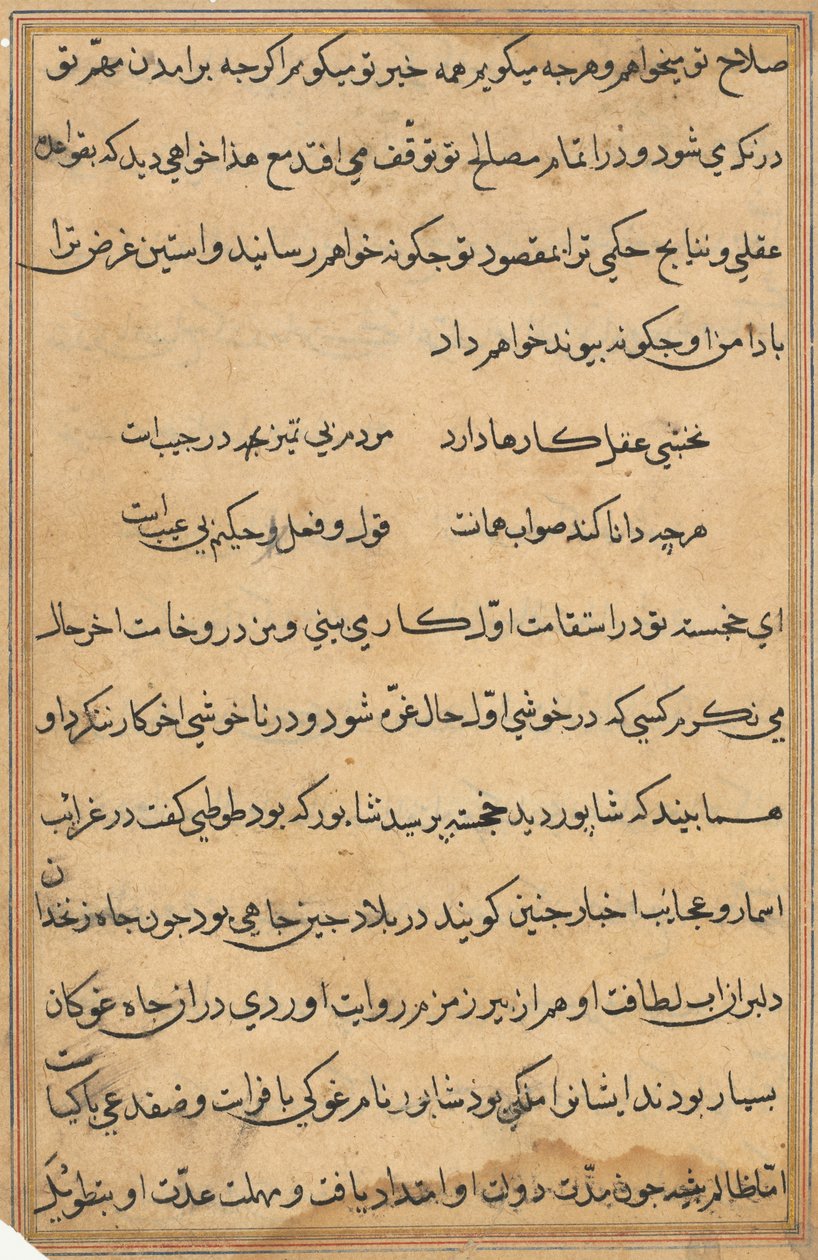 صلاح تو میخواهم و هرجه میکویم همه خیر تو میکویم اکرجه برامدن مهمّ تو
درنک می شود و در اتمام مصالح تو توقّف می افتد مع هذا خواهی دید که بقواعد
عقلی و نتایج حکمی ترا بمقصود تو جکونه خواهم رسانید و استین غرض ترا
با دامن او جکونه بیوند خواهم داد
نخشبی عقل کارها دارد مردم بی تمیز در جیب است
هرچه دانا کند صواب همانست قول و فعل حکیم بی عیب است
ای خجسته تو در استقامت اوّل کار می بینی و من در وخامت اخر حال
می نکرم کسی که در خوشی اوّل حال غرّه شود و در ناخوشی اخر کار ننکرد او
همان بیند که شاپور دید خجسته پرسید شابور که بود طوطی کفت در غرائب
اسمار و عجائب اخبار جنین کویند در بلاد جین جاهی بود جون جاه زنخدان
دلبران اب لطافت او هم از بیر زمزم روایت اوردی در ان جاه غوکان
بسیار بودند ایشانرا ملکی بود شابور نام غوکی با فراست و ضفدعی با کیاست
امّا ظالم بیشه جون مدّت دولت او امتداد یافت و مهلت عدّت او بتطویل